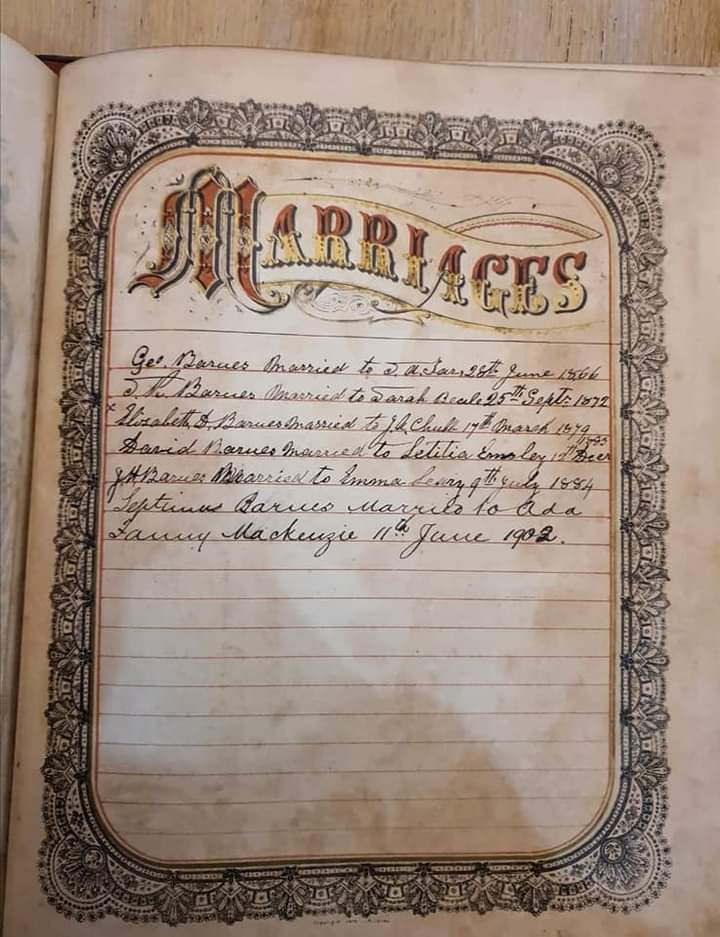 MARRIAGES
Geo. Barnes Married to 28th June 1866
Barnes Married to Sarah 25th Sept. 1872
x Elizabeth D. Barnes Married to J.A. Chubb 17th March 1879
1883
David Barnes Married to Letitia Emsley Decr
J H Barnes Married to Emma Seary 9th July 1884
Septimus Barnes Married to Ada
Fanny Mackenzie 11th June 1902.